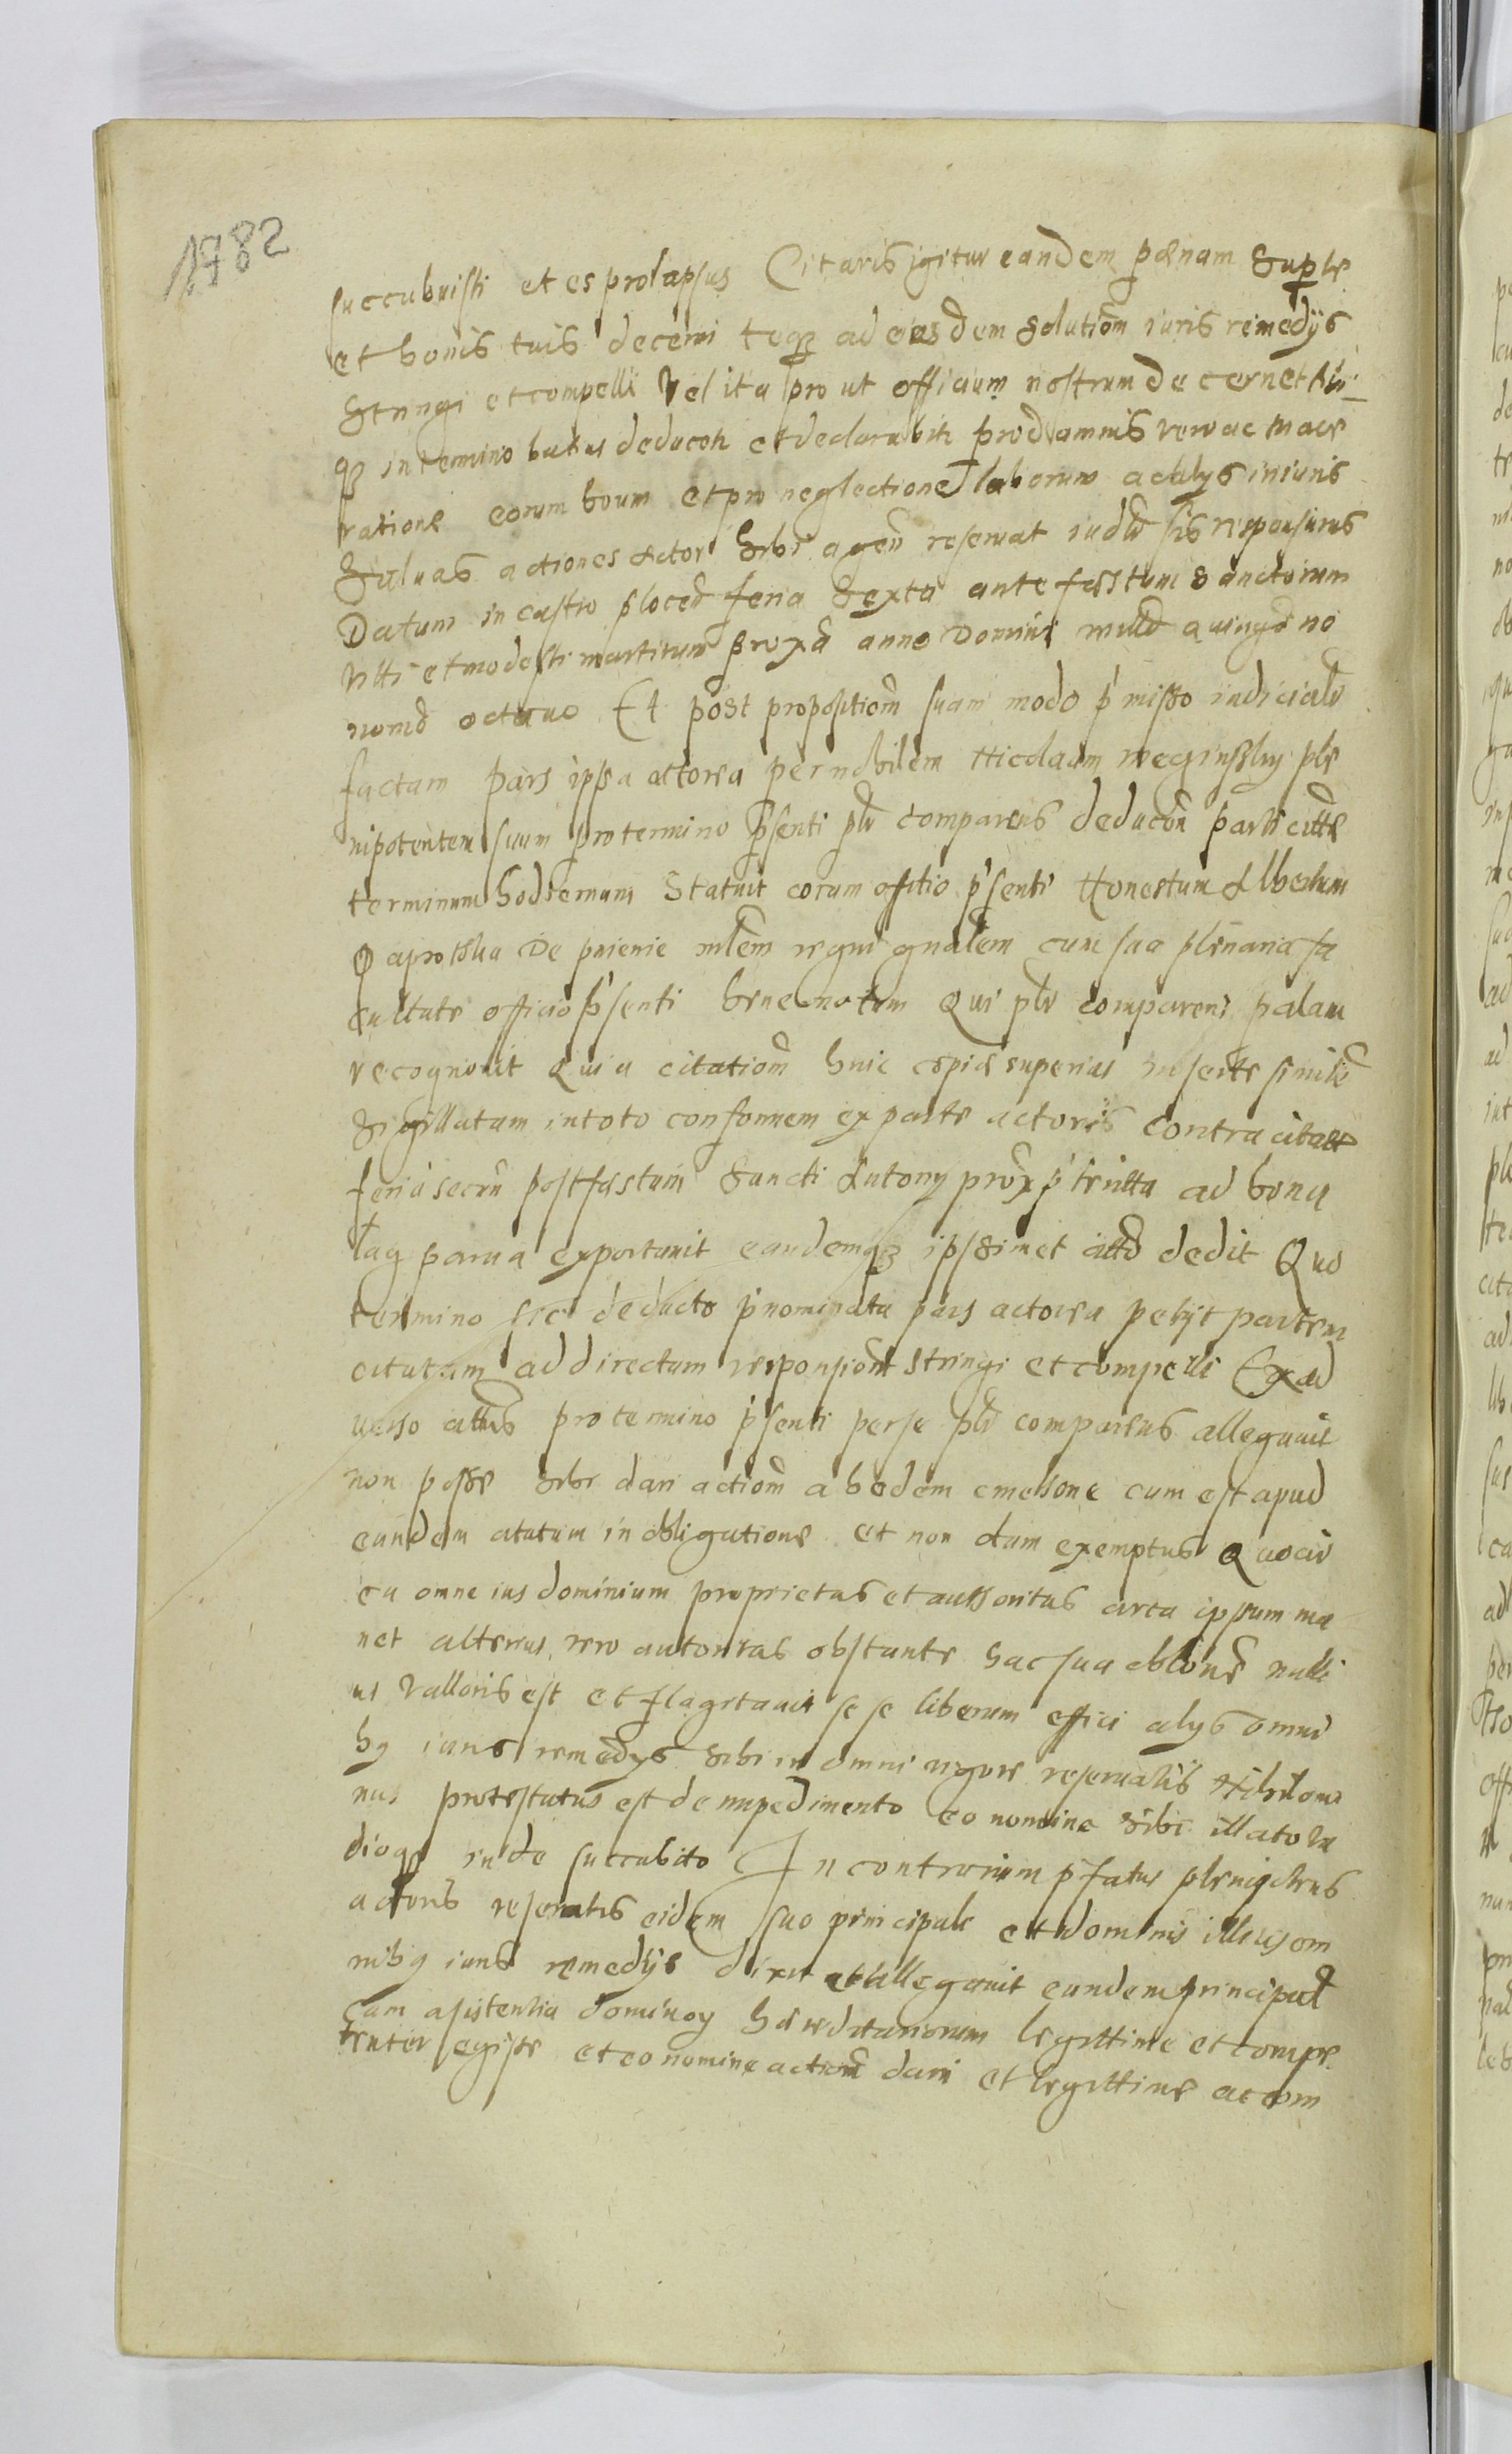 1782
succubuisti et es prolapsus Citaris igitur eandem pœnam super te
et bonis tuis decerni teq3 ad eiusdem solutiom̃ iuris remedijs
stringi et compelli Vel ita pro ut officium nostrum decernet tibi
q3 in termino huius deducen et declarabit pro damnis vero ac
ratione eorum boum et pro neglectione laborum ac alys iniuris
saluas actiones actor sibi agen reseruat iudlr sis responsurus
Datum in castro plocen feria sexta ante festum sanctorum
Viti et modesti martirum proxa anno Domini milld quingd no
nomd octauo Et post propositiom̃ suam modo p'misso iudicialr
factam pars ipsa actorea per nobilem Nicolaum ple
nipotentem suum pro termino p'senti plr comparens deducen parti cittae
terminum hodiernum statuit coram officio p'senti Honestum Albertum
De mlem regni gnalem cum sua plenaria fa
cultate officio p'senti bene notum Qui plr comparens palam
recognouit Quia citatiom̃ huic copiæ superius insertæ similem
sigillatam in toto conformem ex parte actoris contra citatt
feria secun post festum sancti Antony prox p'terita ad bona
Lag parua exportauit eandemq3 ipsimet citto dedit Quo
termino sic deducto p'nominata pars actorea petijt partem
citatam ad directam responsiom̃ stringi et compelli Ex ad
uerso cittus pro termino p'senti per se plr comparens allegauit
non posse sibi dari actiom̃ ab eodem emethone cum est apud
eundem atatum in obligatione et non dum exemptus Quocir
ca omne ius dominium proprietas et authoritas circa ipsum ma
net alterius vero autoritas obstante hac sua oblone nulli
us valloris est et flagitauit se se liberum effici alys omni
b9 iuris remedys sibi in omni rigore reseruatis Nihilomi
nus protestatus est de impedimento eo nomine sibi illato va
dioq3 inde succubito In contrarium p'fatus plenipotens
actoris reseruatis eidem suo principali et dominis illius om
nib9 iuris remedijs dixit et allegauit eundem principal
cum asistentia dominor hæreditariorum legittime et compe
tenter egisse et eo nomine actiom̃ dari et legittime ac com